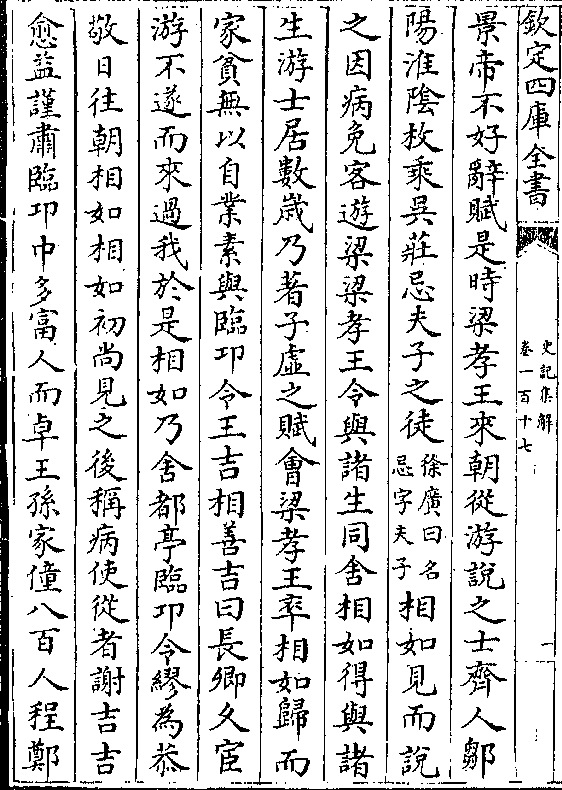 欽定四庫全書
史記集解
卷一百十七
一
景帝不好辭賦是時梁孝王來朝從游說之士齊人鄒
陽淮陰枚乘吳莊忌夫子之徒徐廣曰名忌字夫子相如見而說
之因病免客遊梁梁孝王令與諸生同舍相如得與諸
生游士居數歲乃著子虛之賦會梁孝王卒相如歸而
家貧無以自業素與臨卭令王吉相善吉曰長卿久宦
游不遂而來過我於是相如乃舍都亭臨卭令繆為恭
敬日往朝相如相如初尚見之後稱病使從者謝吉吉
愈益謹肅臨卭中多富人而卓王孫家僮八百人程鄭